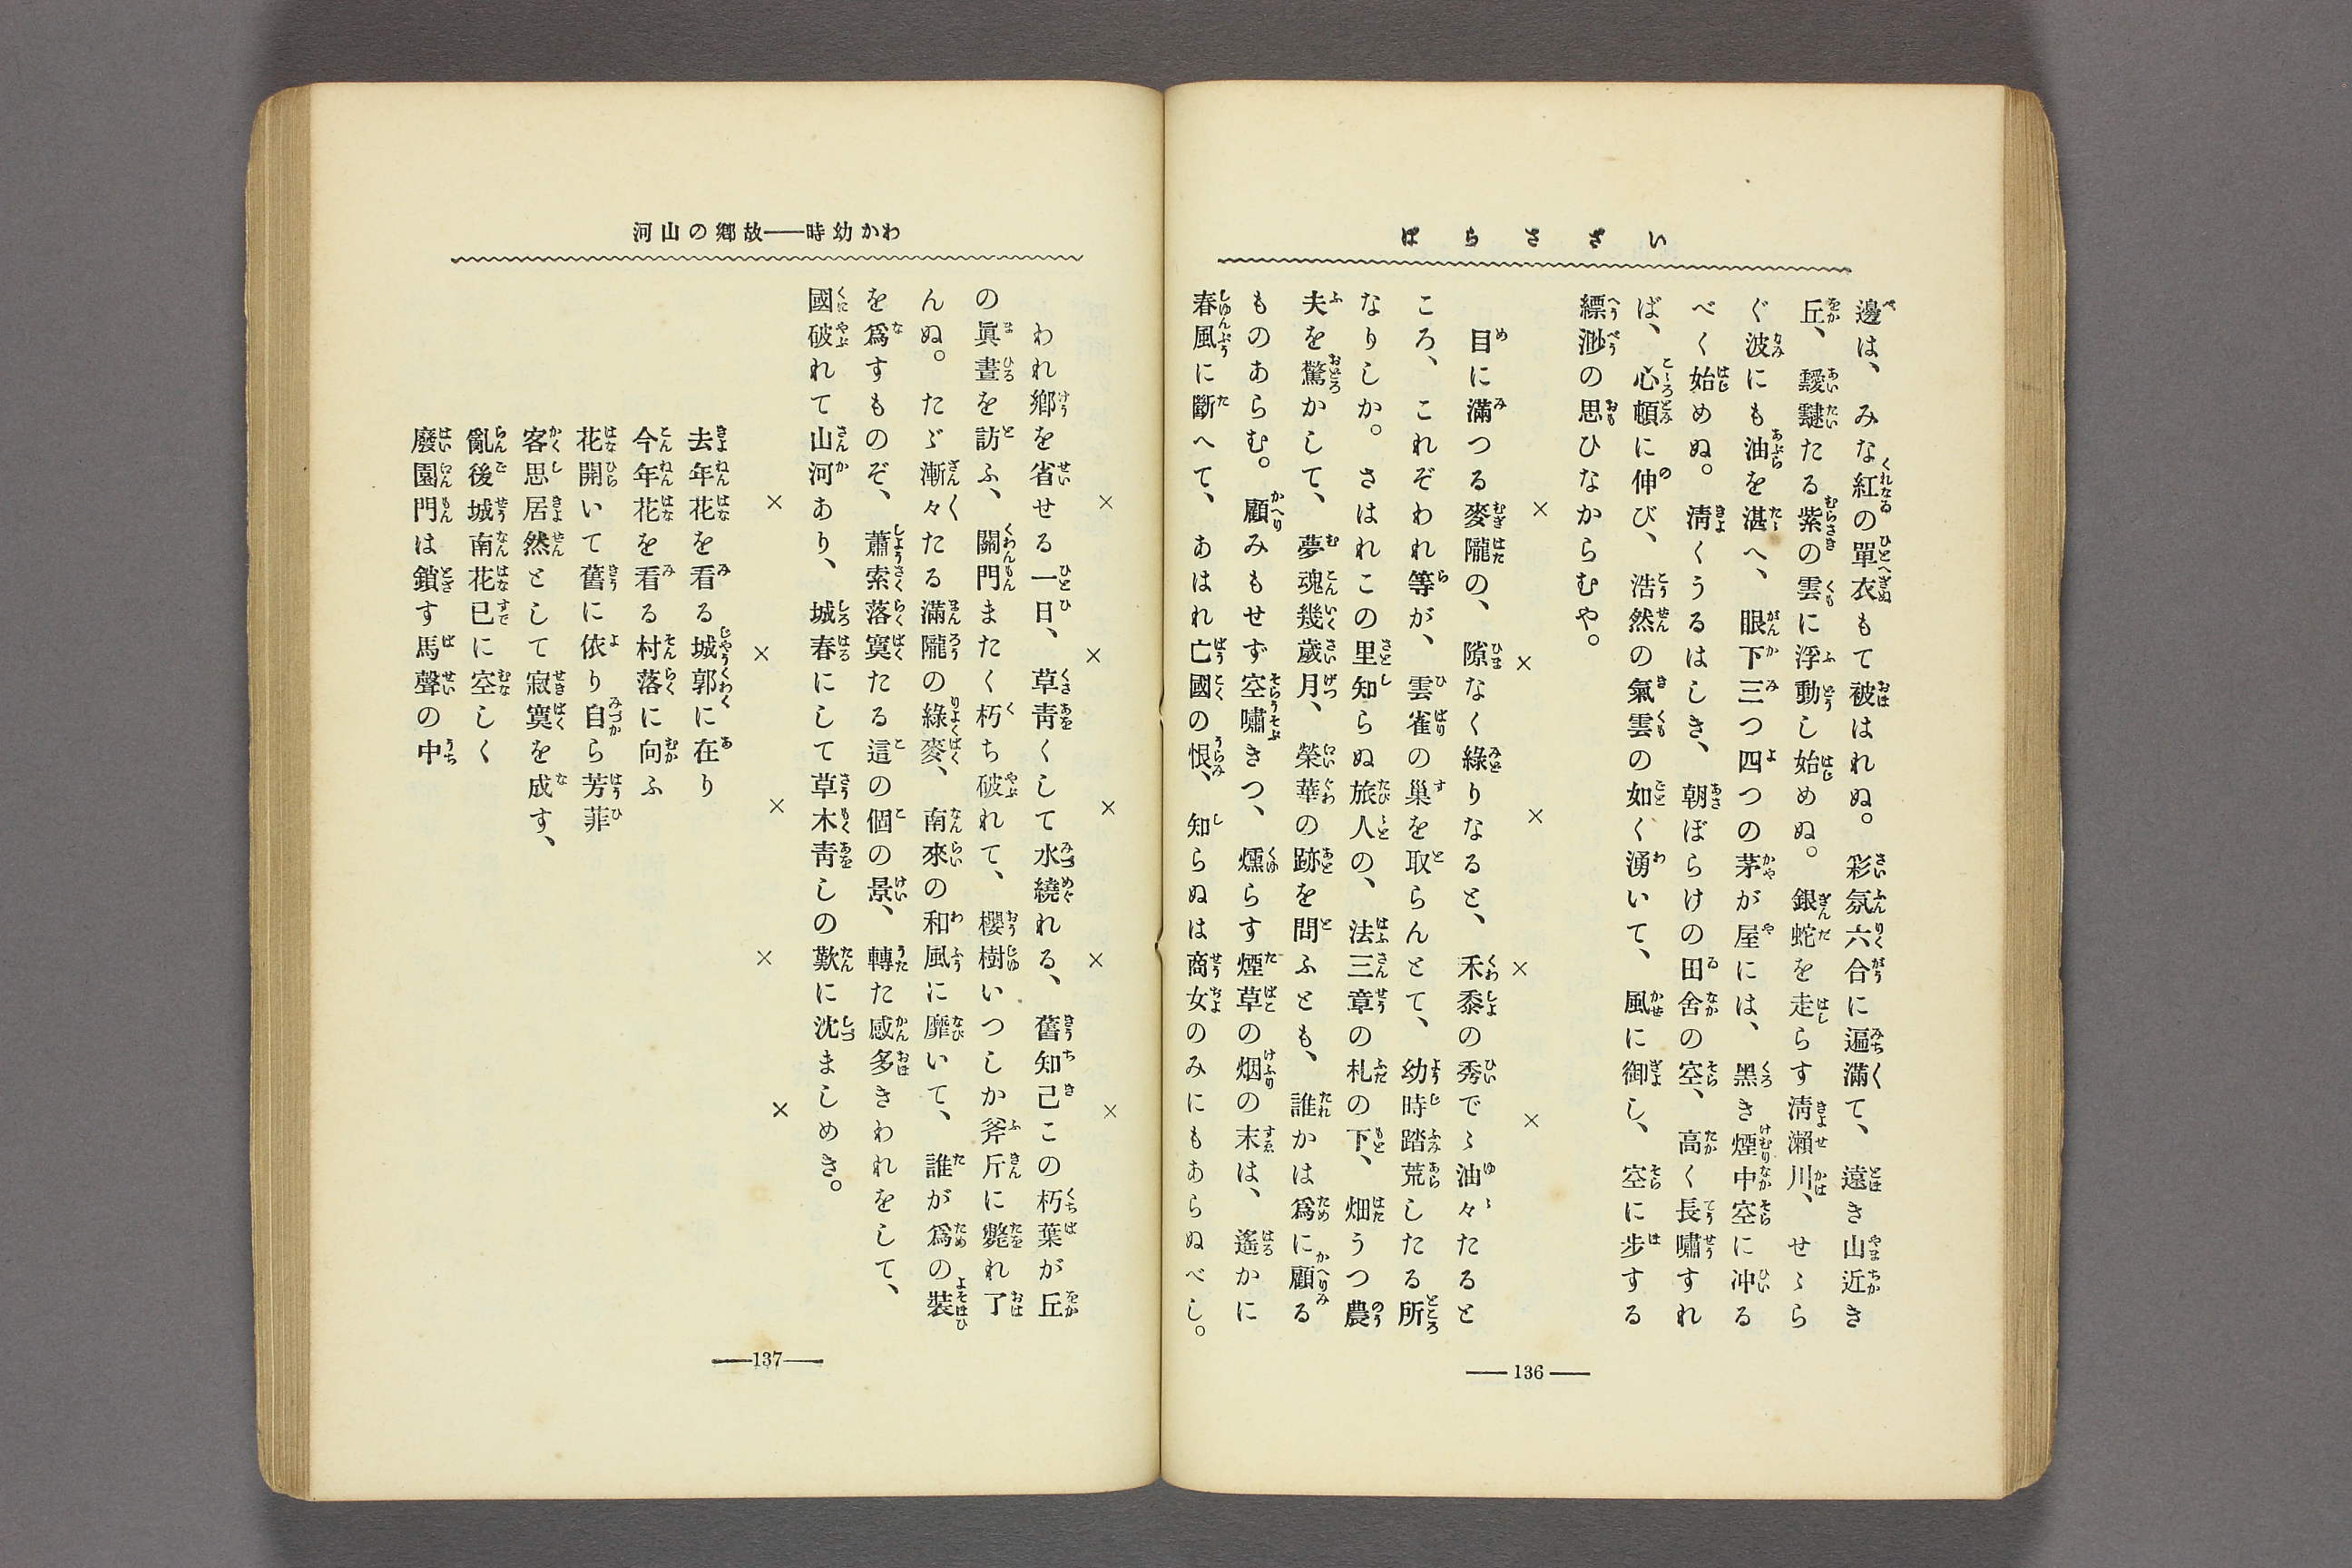 いざさらば
邊は、みな紅の單衣もて被はれぬ。彩氛六合に遍滿くて、遠き山近き
丘、靉靆たる紫の雲に浮動し始めぬ。銀蛇を走らす淸瀨川、せゝら
ぐ波にも油を湛へ、眼下三つ四つの茅が屋には、黑き煙中空に冲る
べく始めぬ。淸くうるはしき、朝ぼらけの田舍の空、高く長嘯すれ
ば、心頓に伸び、浩然の氣雲の如く湧いて、風に御し、空に步する
縹渺の思ひなからむや。
× × × × ×
目に滿つる麥隴の、隙なく綠りなると、禾黍の秀でゝ油々たると
ころ、これぞわれ等が、雲雀の巢を取らんとて、幼時踏荒したる所
なりしか。さはれこの里知らぬ旅人の、法三章の札の下、畑うつ農
夫を驚かして、夢魂幾歲月、榮華の跡を問ふとも、誰かは爲に顧る
ものあらむ。顧みもせず空嘯きつ、燻らす煙草の烟の末は、遙かに
春風に斷へて、あはれ亡國の恨、知らぬは商女のみにもあらぬべし。
—136—
わか幼時——故鄕の山河
× × × × ×
われ鄕を省せる一日、草靑くして水繞れる、舊知己この朽葉が丘
の眞晝を訪ふ、關門またく朽ち破れて、櫻樹いつしか斧斤に斃れ了
んぬ。たゞ漸々たる滿隴の綠麥、南來の和風に靡いて、誰が爲の裝
を爲すものぞ、蕭索落寞たる這の個の景、轉た感多きわれをして、
國破れて山河あり、城春にして草木靑しの歎に沈ましめき。
× × × × ×
去年花を看る城郭に在り
今年花を看る村落に向ふ
花開いて舊に依り自ら芳菲
客思居然として寂寞を成す、
亂後城南花已に空しく
廢園門は鎖す馬聲の中
—137—